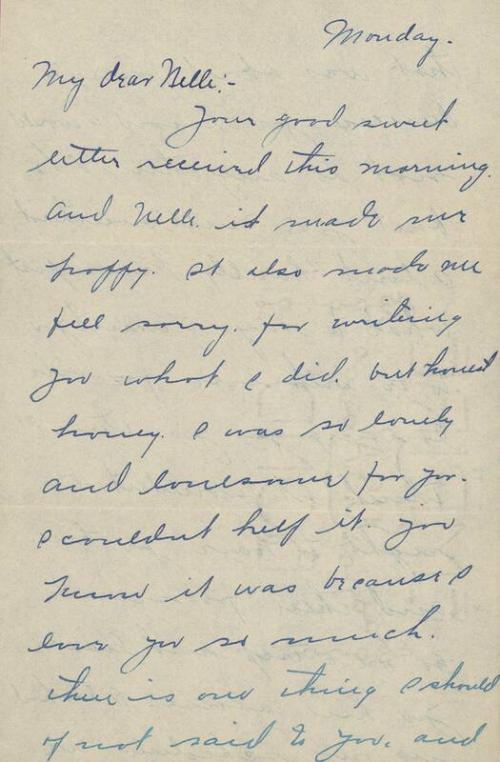 Monday.
My dear Nelle:-
Your good sweet
letter received this morning.
and Nelle. it made me
happy. It also made me
feel sorry. for writing
you what I did. but honest
honey. I was so lonely
and lonesome for you.
I couldnt help it. you
know it was because I
love you so much.
there is one thing I should
of not said to you, and